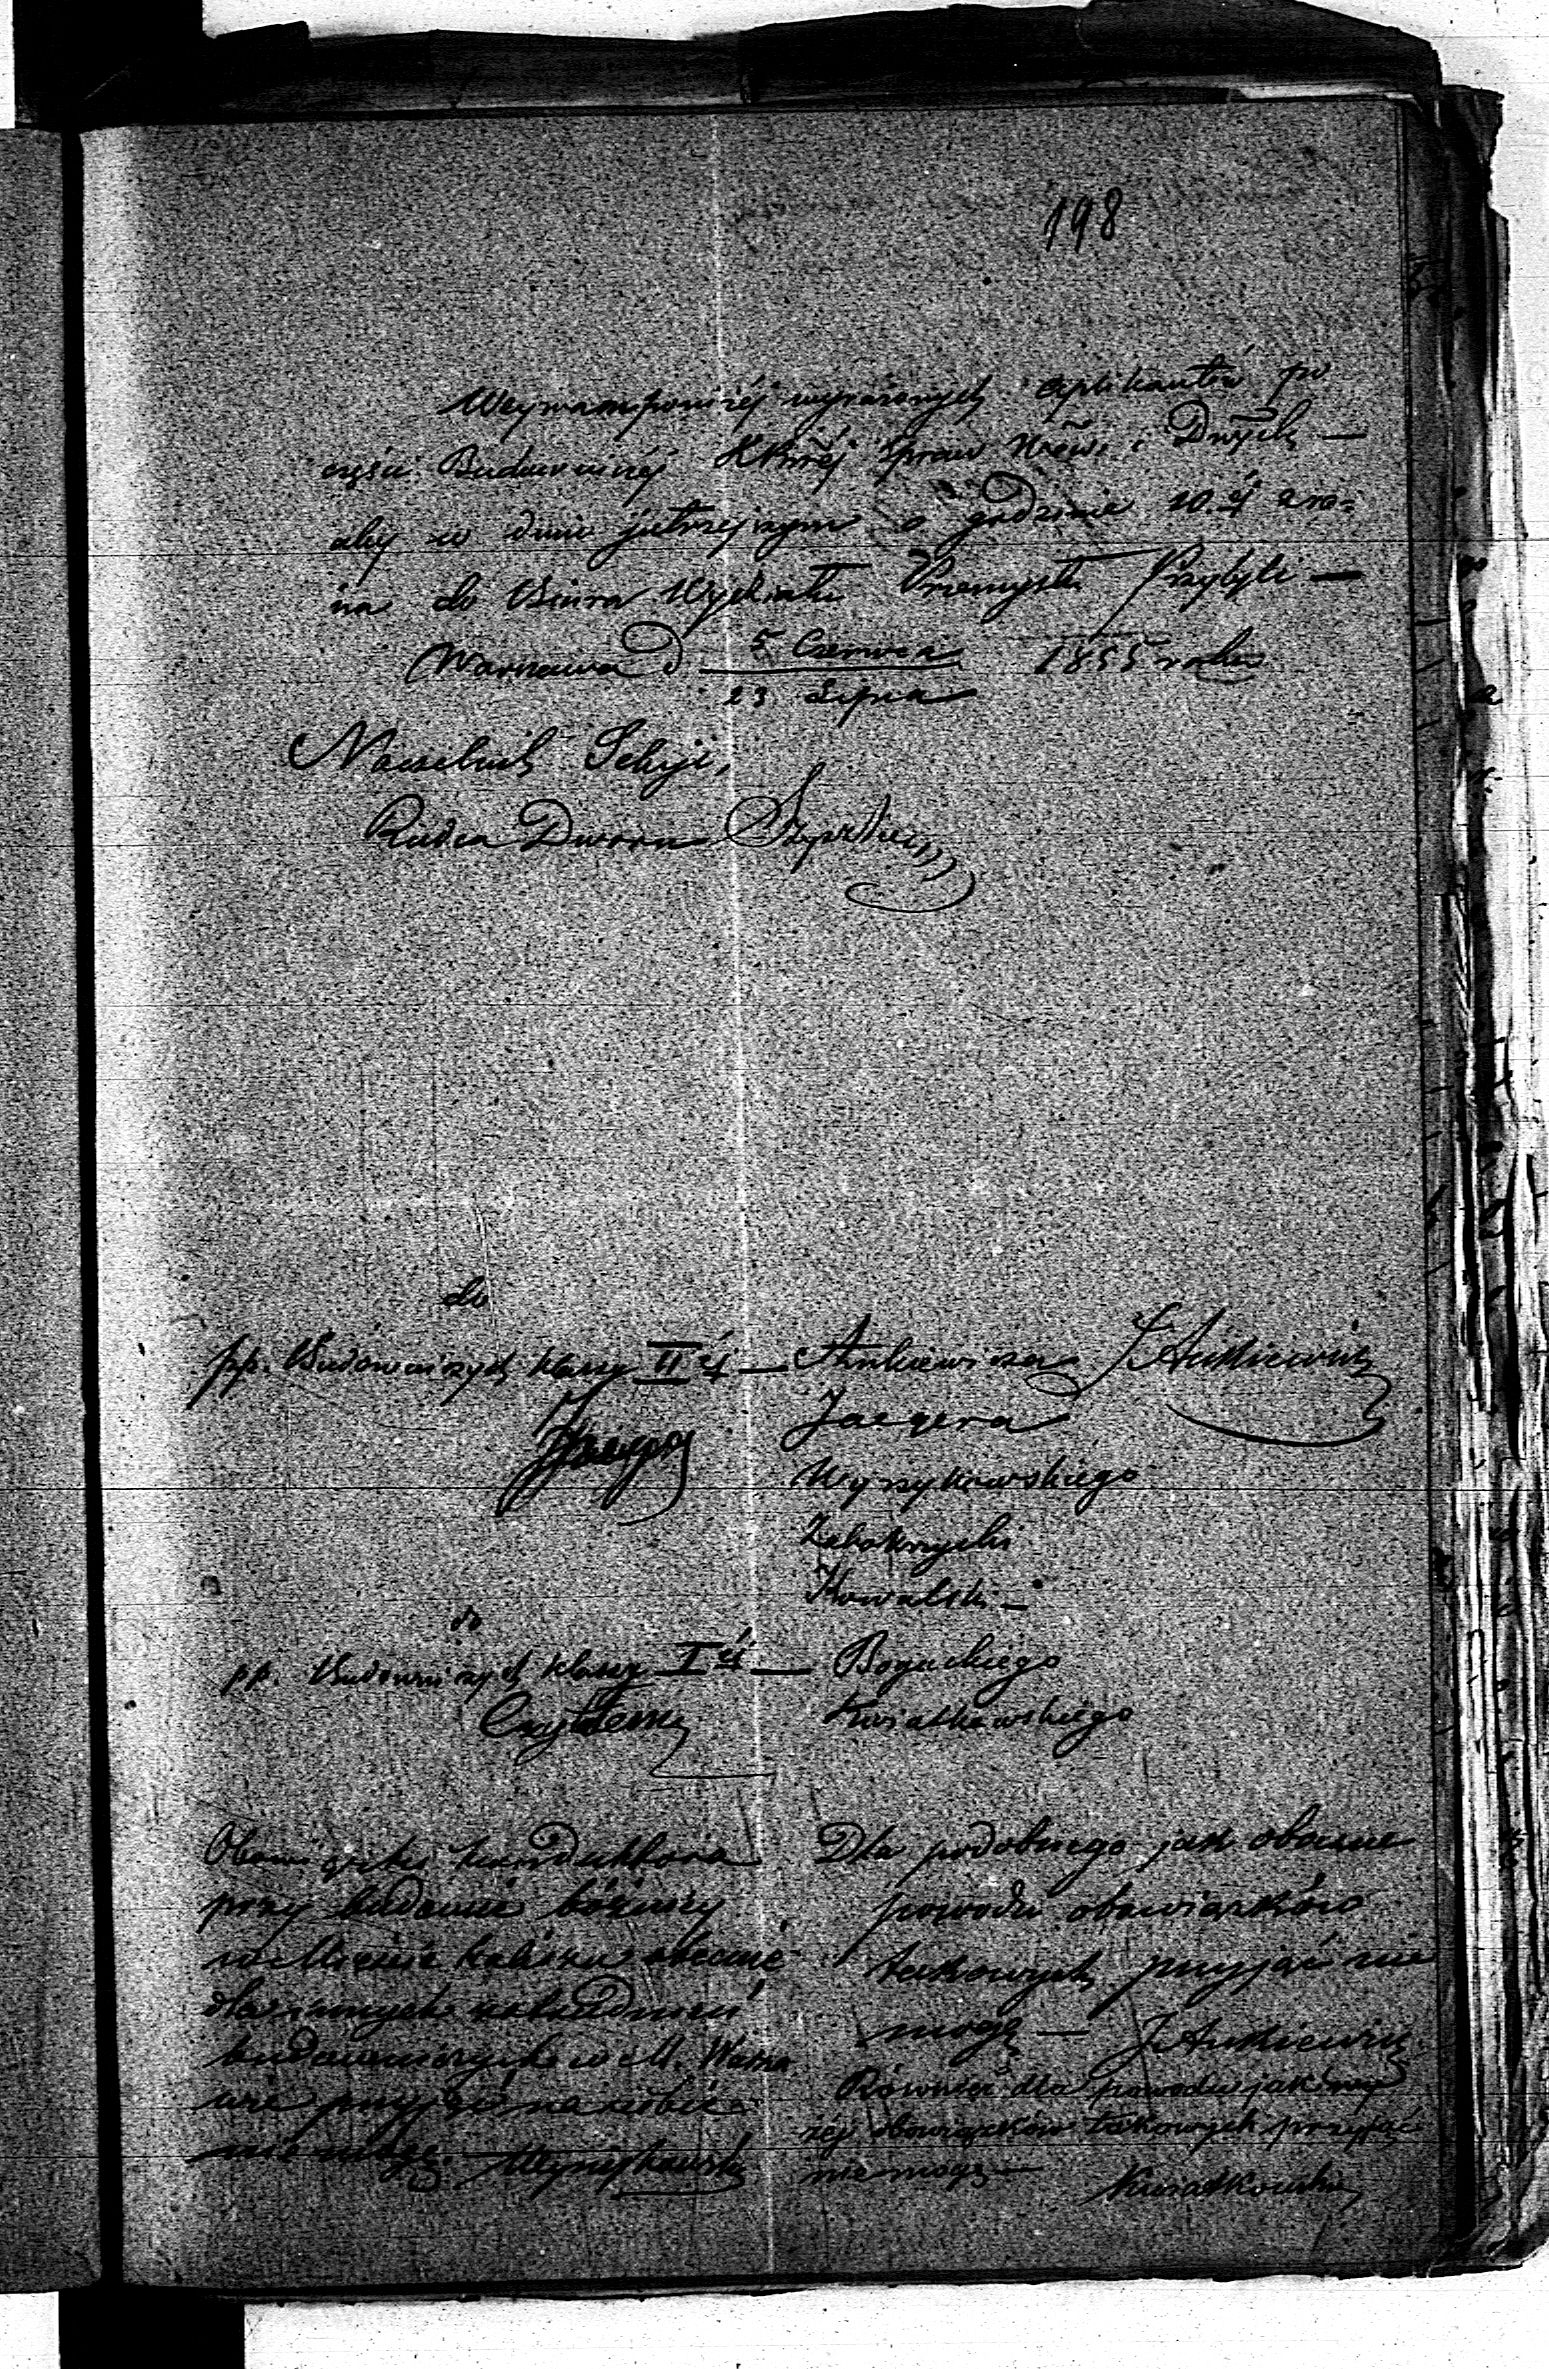 198
Wzywam poniżej wyrażonych Aplikantów po
części Budowniczej KRrzej Spraw Wewn: i Duych —
aby w dniu jutrzejszym o godzinie 10.éj z ra-
na do Biura Wydziału Przemysłu Przybyli —
Warszawa d 5 Czerwca 1855 roku
23 Lipca
Naczelnik Sekcji,
Radca Dworu
do
pp. Budowniczych klasy II éj — Ankiewicza JAnkiewicz
Jaegera
Jaeger
Wyszykowskiego
Zabokrzycki
Kowalski —
do
pp. Budowniczych klasy I éj — Boguckiego
Kwiatkowskiego
Obowiązku konduktora
przy budowie bóżnicy
w Mieście Kaliszu obecnie
dla innych zatrudnień
budowniczych w M. Warsza
wie przyjąć na siebie
nie mogę.
Dla podobnego jak obecne
powodu obowiązków
takowych przyjąć nie
mogę — JAnkiewicz
Również dla powodu jak wy
żej obowiązków takowych przyjąć
nie mogę —
Kwiatkowski